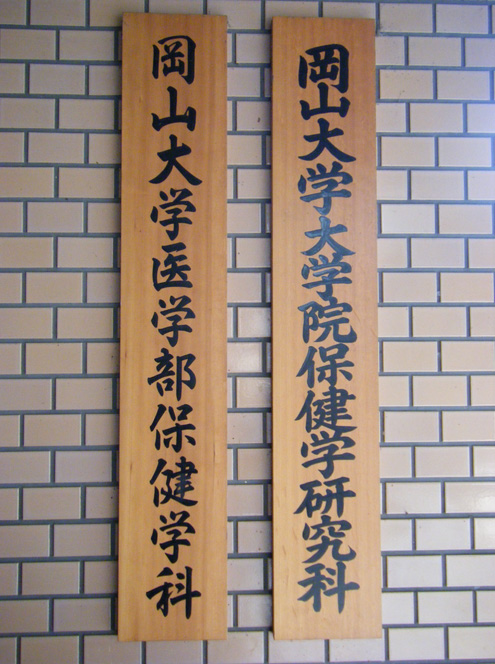 岡山大学大学院保健学研究科
岡山大学医学部保健学科